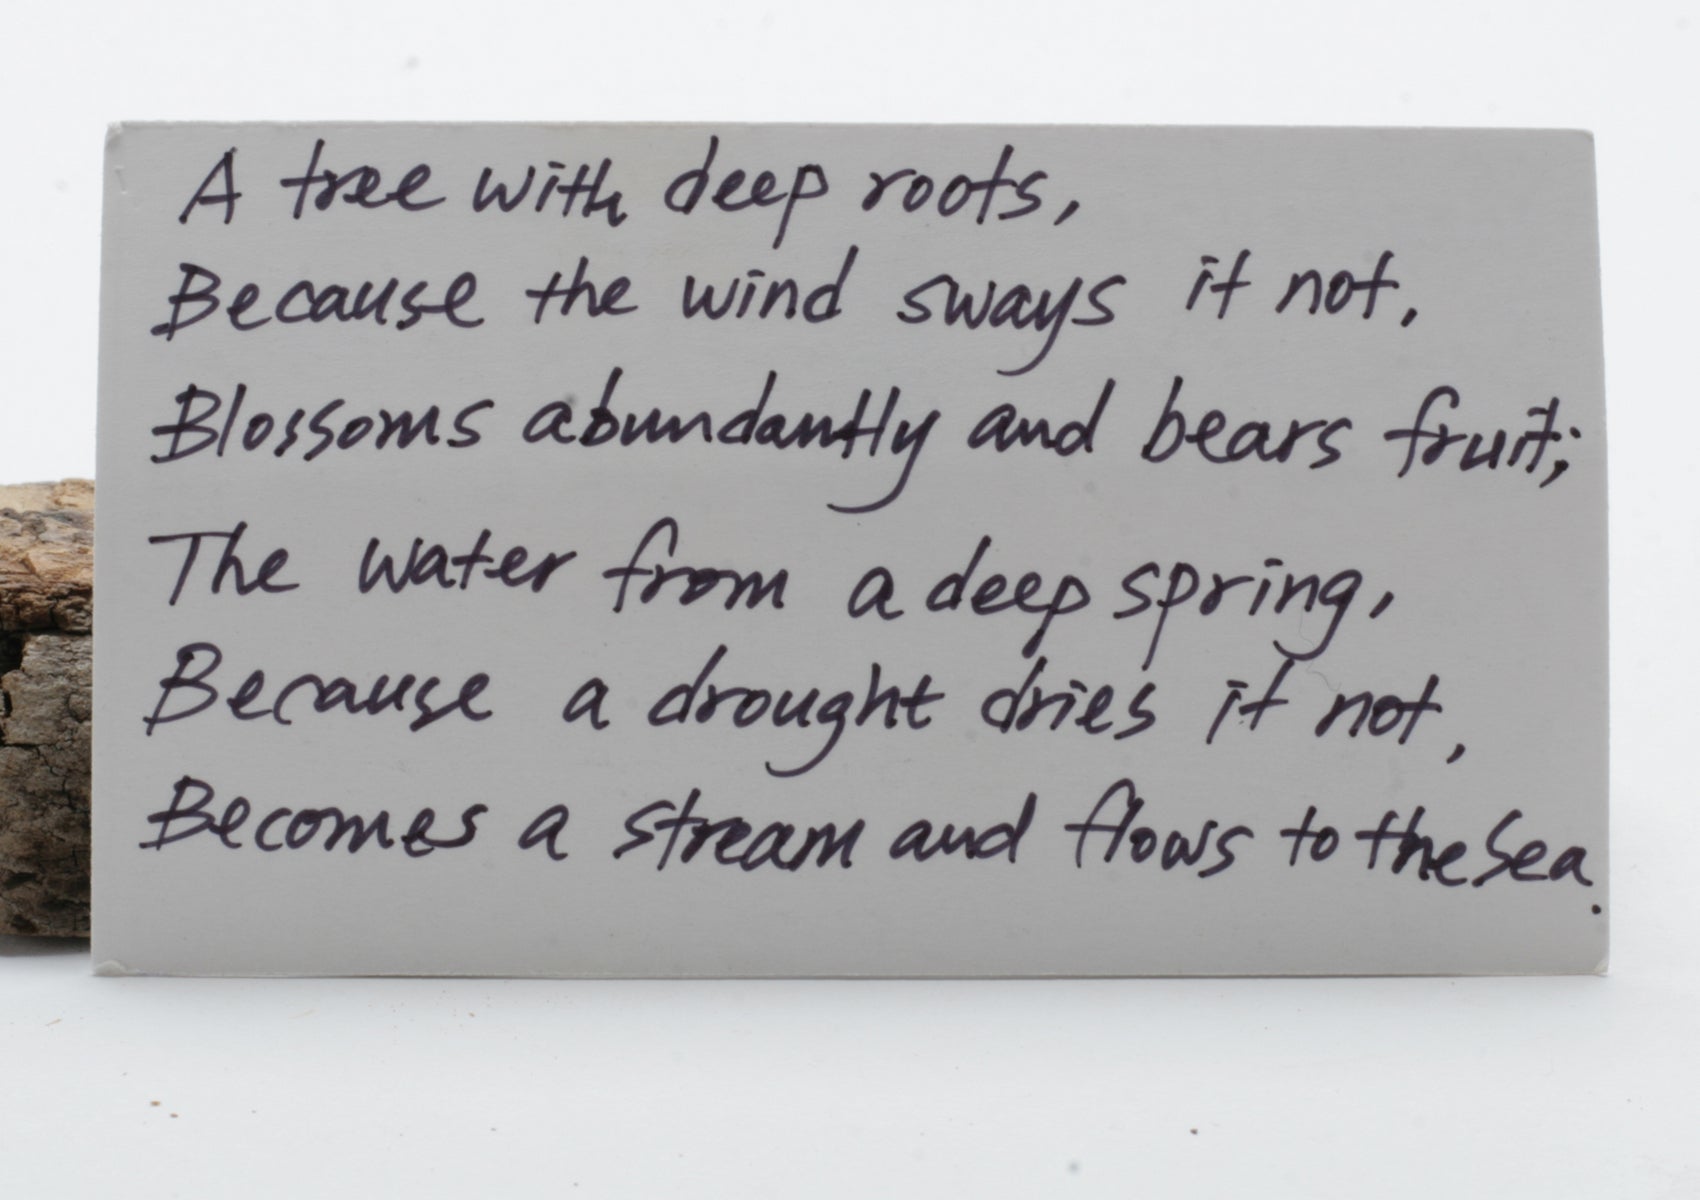 A tree with deep roots,
Because the wind sways it not,
Blossoms abundantly and bears fruit;
The water from a deep spring,
Because a drought dries it not,
Becomes a stream and flows to the sea.